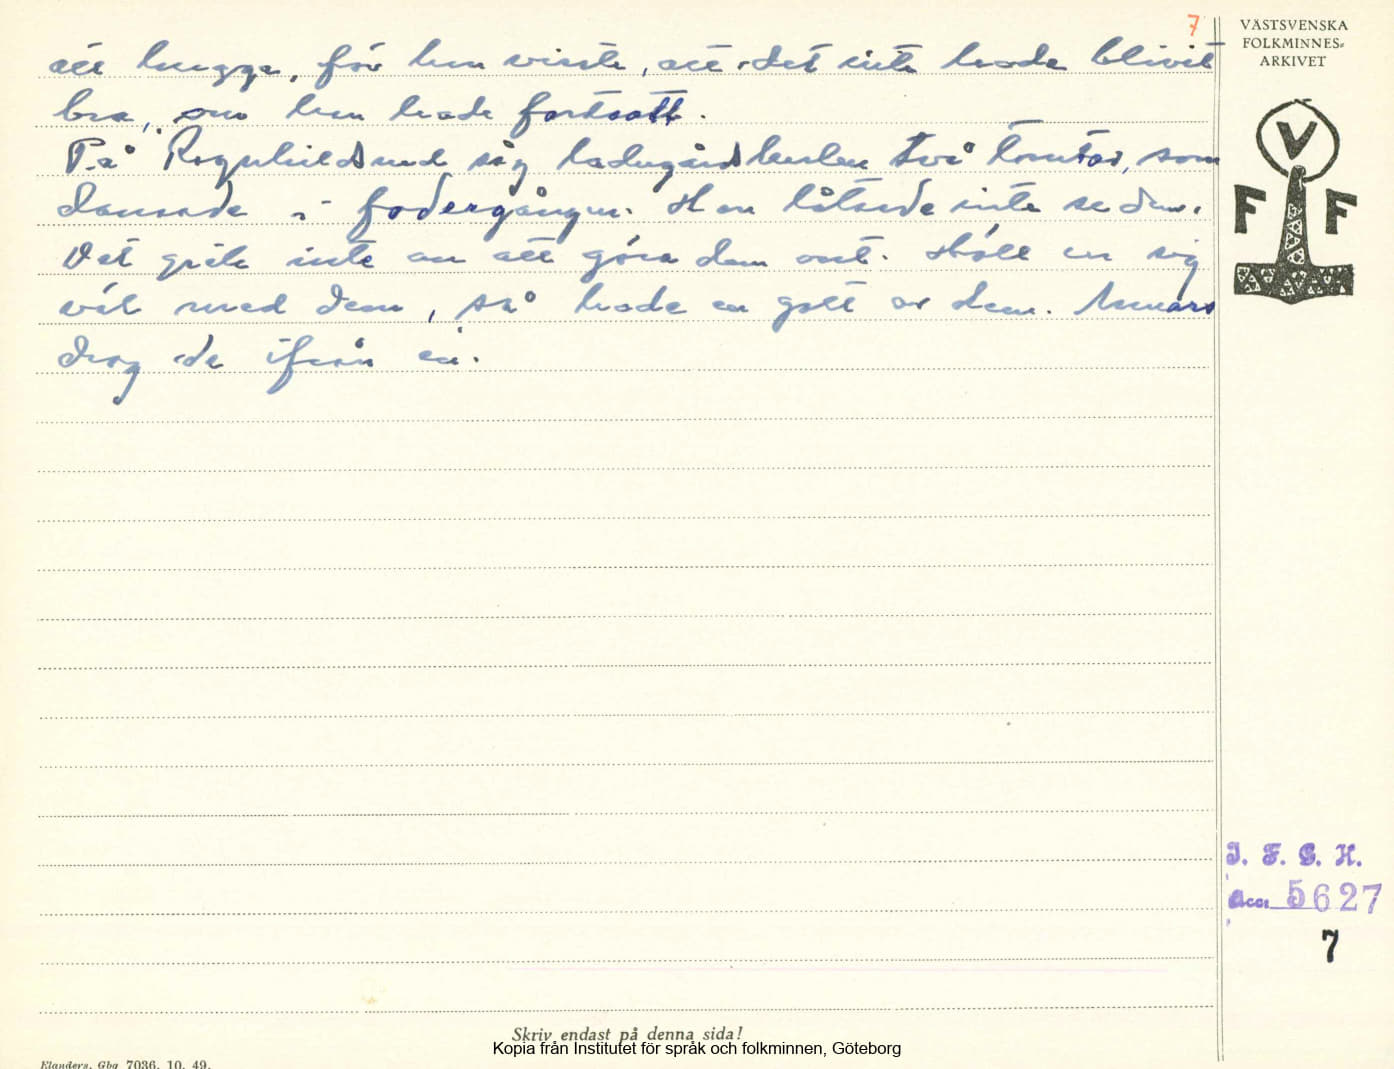 7
VÄSTSVENSKA
FOLKMINNES-
ARKIVET
V
F F
att hugga, för hun visste, att det inte hade blivit
bra, om hun hade fortsatt.
På Ragnhildsrud såg ladugårdskarlen två tomtar, som
dansade i fodergången. Han låtsade inte se dem.
Det gick inte an att göra dem ont. Höll en sig
väl med dem, så hade en gott av dem. Annars
drog de ifrån en.
I. F. G. H.
Acc. 5627
7
Skriv endast på denna sida!
Kopia från Institutet för språk och folkminnen, Göteborg
Elanders, Gbg 7036. 10. 49.